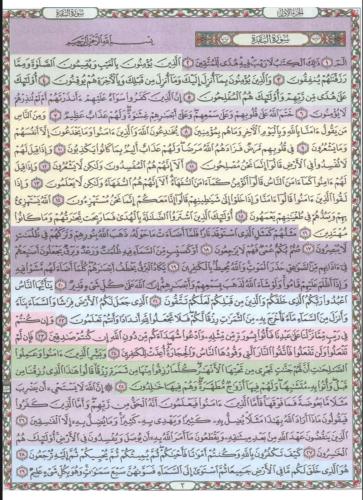 الجزء الأول سورة البقرة
سورة البقرة بسم الله الرحمن الرحيم
الم ١ ذلك الكتاب لا ريب فيه هدى للمتقين ٢ الذين يؤمنون بالغيب ويقيمون الصلوة ومما
رزقناهم ينفقون ٣ والذين يؤمنون بما أنزل إليك وما أنزل من قبلك وبالآخرة هم يوقنون ٤ أولئك
على هدى من ربهم وأولئك هم المفلحون ٥ إن الذين كفروا سواء عليهم ءأنذرتهم أم لم تنذرهم
لا يؤمنون ٦ ختم الله على قلوبهم وعلى سمعهم وعلى أبصارهم غشاوة ولهم عذاب عظيم ٧ ومن الناس
من يقول ءامنا بالله وباليوم الآخر وما هم بمؤمنين ٨ يخادعون الله والذين ءامنوا وما يخدعون إلا أنفسهم
وما يشعرون ٩ في قلوبهم مرض فزادهم الله مرضا ولهم عذاب أليم بما كانوا يكذبون ١٠ وإذا قيل لهم
لا تفسدوا في الأرض قالوا إنما نحن مصلحون ١١ ألا إنهم هم المفسدون ولكن لا يشعرون ١٢ وإذا قيل
لهم ءامنوا كما ءامن الناس قالوا أنؤمن كما ءامن السفهاء ألا إنهم هم السفهاء ولكن لا يعلمون ١٣ وإذا لقوا
الذين ءامنوا قالوا ءامنا وإذا خلوا إلى شياطينهم قالوا إنا معكم إنما نحن مستهزءون ١٤ الله يستهزئ
بهم ويمدهم في طغيانهم يعمهون ١٥ أولئك الذين اشتروا الضلالة بالهدى فما ربحت تجارتهم وما كانوا
مهتدين ١٦ مثلهم كمثل الذي استوقد نارا فلما أضاءت ما حوله ذهب الله بنورهم وتركهم في ظلمات
لا يبصرون ١٧ صم بكم عمي فهم لا يرجعون ١٨ أو كصيب من السماء فيه ظلمات ورعد وبرق يجعلون أصابعهم
في ءاذانهم من الصواعق حذر الموت والله محيط بالكافرين ١٩ يكاد البرق يخطف أبصارهم كلما أضاء لهم مشوا فيه
وإذا أظلم عليهم قاموا ولو شاء الله لذهب بسمعهم وأبصارهم إن الله على كل شيء قدير ٢٠ يا أيها الناس
اعبدوا ربكم الذي خلقكم والذين من قبلكم لعلكم تتقون ٢١ الذي جعل لكم الأرض فراشا والسماء بناء
وأنزل من السماء ماء فأخرج به من الثمرات رزقا لكم فلا تجعلوا لله أندادا وأنتم تعلمون ٢٢ وإن كنتم
في ريب مما نزلنا على عبدنا فأتوا بسورة من مثله وادعوا شهداءكم من دون الله إن كنتم صادقين ٢٣ فإن لم
تفعلوا ولن تفعلوا فاتقوا النار التي وقودها الناس والحجارة أعدت للكافرين ٢٤ وبشر الذين ءامنوا وعملوا
الصالحات أن لهم جنات تجري من تحتها الأنهار كلما رزقوا منها من ثمرة رزقا قالوا هذا الذي رزقنا من
قبل وأتوا به متشابها ولهم فيها أزواج مطهرة وهم فيها خالدون ٢٥ إن الله لا يستحي أن يضرب
مثلا ما بعوضة فما فوقها فأما الذين ءامنوا فيعلمون أنه الحق من ربهم وأما الذين كفروا
فيقولون ماذا أراد الله بهذا مثلا يضل به كثيرا ويهدي به كثيرا وما يضل به إلا الفاسقين ٢٦
الذين ينقضون عهد الله من بعد ميثاقه ويقطعون ما أمر الله به أن يوصل ويفسدون في الأرض أولئك هم
الخاسرون ٢٧ كيف تكفرون بالله وكنتم أمواتا فأحياكم ثم يميتكم ثم يحييكم ثم إليه ترجعون ٢٨
هو الذي خلق لكم ما في الأرض جميعا ثم استوى إلى السماء فسواهن سبع سماوات وهو بكل شيء عليم ٢٩
٢